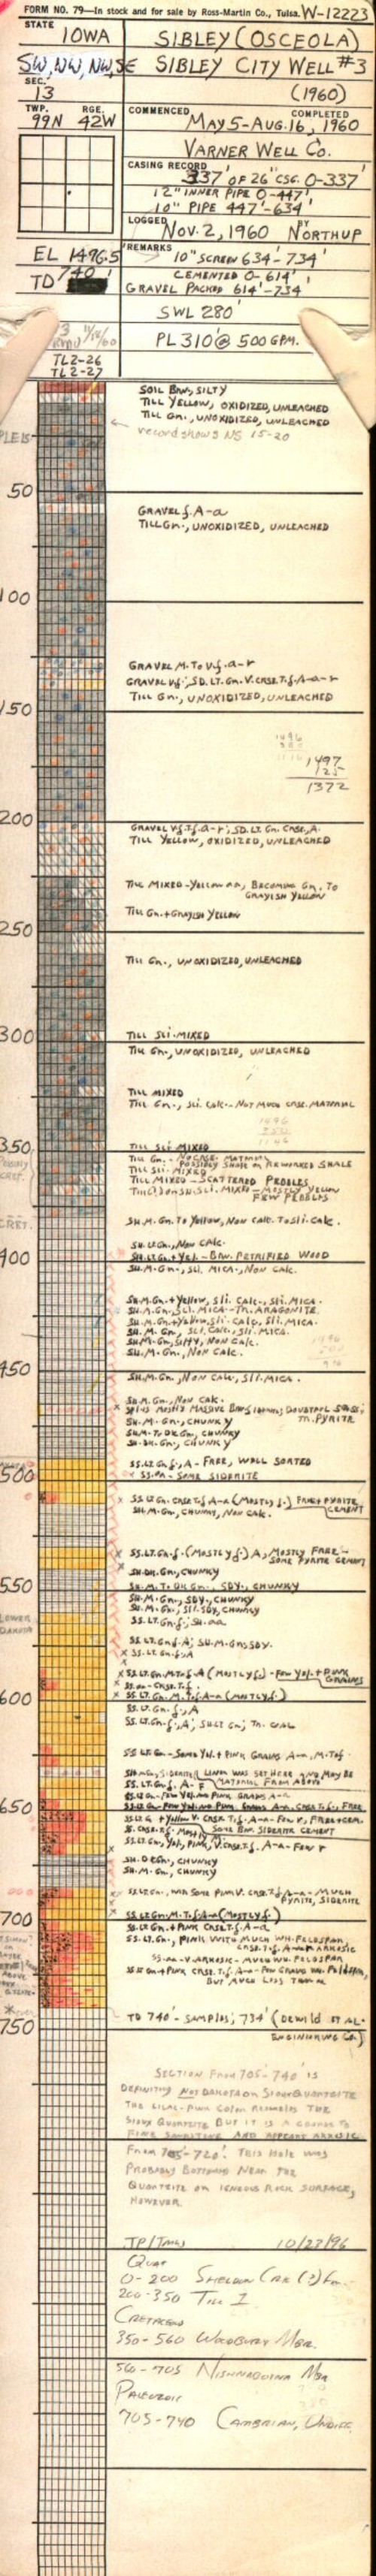 FORM NO. 79—In stock and for sale by Ross-Martin Co., Tulsa. W-12223
STATE IOWA SIBLEY (OSCEOLA)
SW, NW, NW, SE SIBLEY CITY WELL #3
SEC. 13 (1960)
TWP. 99N RGE. 42W
COMMENCED COMPLETED
MAY 5-AUG. 16, 1960
VARNER WELL CO.
CASING RECORD
337' OF 26" CSG. 0-337'
12" INNER PIPE 0-447'
10" PIPE 447'-634'
LOGGED NOV. 2, 1960 BY NORTHUP
EL 1496.5
TD 740'
REMARKS
10" SCREEN 634'-734'
CEMENTED 0-614'
GRAVEL PACKED 614'-734'
SWL 280'
PL 310' @ 500 GPM.
TL2-26
TL2-27
SOIL BRN, SILTY
TILL YELLOW, OXIDIZED, UNLEACHED
TILL GN., UNOXIDIZED, UNLEACHED
record shows NS 15-20
PLEIS
50
GRAVEL f. A-a
TILL GN., UNOXIDIZED, UNLEACHED
100
GRAVEL M. TO V.f. a-r
GRAVEL V.f.; SD. LT. GN. V. CRSE. T. f. A-a-r
TILL GN., UNOXIDIZED, UNLEACHED
150
1497
125
1372
200
GRAVEL V.f. T. f. a-r; SD. LT. GN. CRSE., A.
TILL YELLOW, OXIDIZED, UNLEACHED
TILL MIXED-YELLOW AA, BECOMING GN. TO
GRAYISH YELLOW
TILL GN. + GRAYISH YELLOW
250
TILL GN., UNOXIDIZED, UNLEACHED
300
TILL SLI. MIXED
TILL GN., UNOXIDIZED, UNLEACHED
TILL MIXED
TILL GN., SLI. CALC.-NOT MUCH CRSE. MATERIAL
350
TILL SLI. MIXED
TILL GN.-NO CRSE. MATERIAL
POSSIBLY SHALE OR REWORKED SHALE
TILL SLI. MIXED
TILL MIXED-SCATTERED PEBBLES
MIXED-MOSTLY YELLOW
FEW PEBBLES
CRET.
SH. M. GN. TO YELLOW, NON CALC. TO SLI. CALC.
SH. LT. GN., NON CALC.
400
SH. LT. GN. + YEL.-BRN. PETRIFIED WOOD
SH. M. GN., SLI. MICA., NON CALC.
SH. M. GN. + YELLOW, SLI. CALC., SLI. MICA.
SH. M. GN., SLI. MICA-TR. ARAGONITE.
SH. M. GN. + YELLOW, SLI. CALC., SLI. MICA.
SH. M. GN., SLI. CALC., SLI. MICA.
SH. M. GN., SILTY, NON CALC.
SH. M. GN., NON CALC.
450
SH. M. GN., NON CALC., SLI. MICA.
SH. M. GN., NON CALC.
TR. PYRITE
SH. M. GN., CHUNKY
SH. M. TO DK. GN., CHUNKY
SH. DK. GN., CHUNKY
SS. LT. GN. f., A-FREE, WELL SORTED
500
SS. AA-SOME SIDERITE
SS. LT. GN. CRSE. T. f. A-a (MOSTLY f.) FREE + PYRITE
CEMENT
SH. M. GN., CHUNKY, NON CALC.
SS. LT. GN. f. (MOSTLY f.) A, MOSTLY FREE-
SOME PYRITE CEMENT
SH. DK. GN., CHUNKY
550
SH. M. TO DK. GN., SDY., CHUNKY
SH. M. GN., SDY., CHUNKY
SH. M. GN., SLI. SDY., CHUNKY
LOWER
DAKOTA
SS. LT. GN. f.; SH. AA
SS. LT. GN. f. A; SH. M. GN., SDY.
SS. LT. GN. f. A
SS. LT. GN. M. T. f. A (MOSTLY f.)-FEW YEL. + PINK
GRAINS
SS. AA-CRSE. T. f.
600
SS. LT. GN. M. T. f. A-a (MOSTLY f.)
SS. LT. GN. f., A
SS. LT. GN. f., A; SH. LT. GN.; TR. COAL
SS. LT. GN.-SOME YEL. + PINK GRAINS A-a, M. T. f.
LINER WAS SET HERE AND MAY BE
MATERIAL FROM ABOVE
SS. LT. GN. f. A-F
SS. LT. GN.-FEW YEL. AND PINK GRAINS A-a
650
SS. LT. GN.-FEW YEL. AND PINK GRAINS A-a, CRSE. T. f., FREE
SS. LT. G + YELLOW V. CRSE. T. f. A-a-FEW r, FREE + CEM.
SOME BRN. SIDERITE CEMENT
SS. LT. GN., YEL., PINK, V. CRSE. T. f. A-a-FEW r
SH. DK. GN., CHUNKY
SH. M. GN., CHUNKY
SS. LT. GN., WITH SOME PINK V. CRSE. T. f. A-a-MUCH
PYRITE, SIDERITE
SS. LT. GN. M. T. f. A-a (MOSTLY f.)
700
SS. LT. GN. + PINK CRSE. T. f. A-a
SS. LT. GN., PINK WITH MUCH WH. FELDSPAR,
CRSE. T. f. A-a ARKOSIC
SS. AA-V. ARKOSIC-MUCH WH. FELDSPAR
SS. LT. GN. + PINK CRSE. T. f. A-a-FEW GRAINS WH. FELDSPAR,
BUT MUCH LESS THAN AA
750
TD 740'-SAMPLES; 734' (DEWILD ET AL.
ENGINEERING CO.)
SECTION FROM 705'-740' IS
DEFINITELY NOT DAKOTA OR SIOUX QUARTZITE
THE LILAC-PINK COLOR RESEMBLES THE
SIOUX QUARTZITE BUT IT IS A COARSE TO
FINE SANDSTONE AND APPEARS ARKOSIC
FROM 705'-720'. THIS HOLE WAS
PROBABLY BOTTOMED NEAR THE
QUARTZITE OR IGNEOUS ROCK SURFACE,
HOWEVER
10/23/96
QUAT
0-200 SHELDON CRK (?) Fm.
200-350 TILL I
CRETACEOUS
350-560 WOODBURY MBR.
560-705 NISHNABOTNA MBR
PALEOZOIC
705-740 CAMBRIAN, UNDIFF.